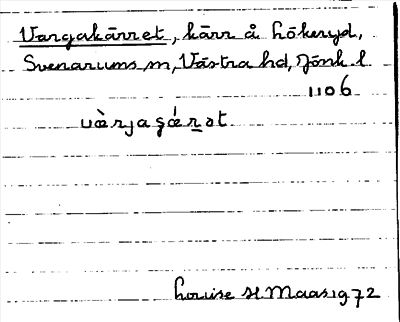 Vargakärret, kärr å Hökeryd,
Svenarums sn, Västra hd, Jönk. l.
1106
vàrjaʂǽṟət
Louise H. Maas 1972